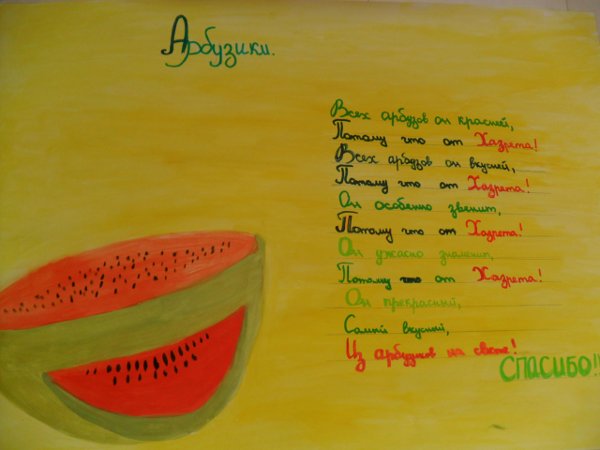 Арбузики.
Всех арбузов он красней,
Потому что от Хазрета!
Всех арбузов он вкусней,
Потому что от Хазрета!
Он особенно звенит,
Потому что от Хазрета!
Он ужасно знаменит,
Потому что от Хазрета!
Он прекрасный,
Самый вкусный,
Из арбузов на свете!
СПАСИБО!!